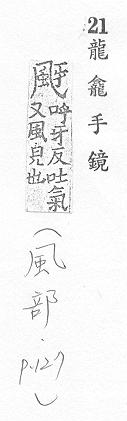 21 龍龕手鏡
颬
呼牙反吐氣
又風皃也
(風部．p.127)